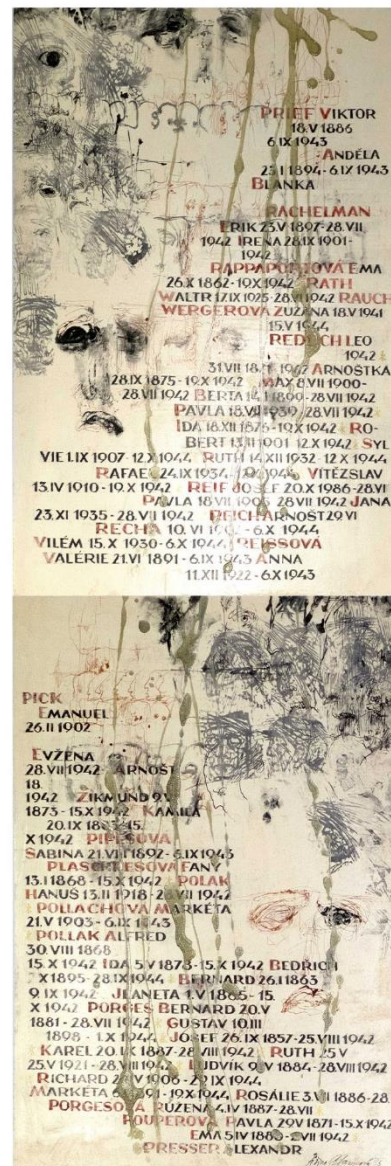 PRIEF VIKTOR
18.V 1886
6.IX 1943
ANDĚLA
1894-6.IX 1943
BLANKA
RACHELMAN
ERIK 23.V 1897-28.VII
1942 IRENA 28.IX 1901-
1942
RAPPAPORTOVÁ EMA
26.X 1862-19.X 1942 RATH
WALTR 17.IX 1925-28.VII 1942 RAUCH
WERGEROVÁ ZUZANA 18.V 1941
15.V 1944
REDLICH LEO
1942
31.VII 1942 ARNOŠTKA
28.IX 1875-19.X 1942 MAX 8.VII 1900-
28.VII 1942 BERTA 1899-28.VII 1942
PAVLA 18.VII 1939-28.VII 1942
IDA 18.XII 1876-19.X 1942 RO-
BERT 1901 12.X 1942 SYL
VIE 1.IX 1907-12.X 1944 RUTH 14.XII 1932-12.X 1944
RAFAEL 24.IX 1934 1944 VÍTĚZSLAV
13.IV 1910-19.X 1942 REIF JOSEF 20.X 1986-28.VI
PAVLA 18.VII 28.VII 1942 JANA
23.XI 1935-28.VII 1942 REICH ARNOŠT 29.VI
RECHA 10.VI -6.X 1944
VILÉM 15.X 1930-6.X 1944 REISSOVÁ
VALÉRIE 21.VI 1891-6.IX 1943 ANNA
11.XII 1922-6.X 1943
PICK
EMANUEL
26.II 1902
EVŽENA
28.VII 1942- ARNOŠT
18.
1942 ZIKMUND
1873-15.X 1942 KAMILA
20.IX 15.
X 1942 PIPESOVÁ
SABINA 21.VII 1892-6.IX 1943
PLASCHKESOVÁ FANY
13.I 1868-15.X 1942 POLAK
HANUŠ 13.II 1918-28.VII 1942
POLLACHOVÁ MARKÉTA
21.V 1903-6.IX 1943
POLLAK ALFRED
30.VIII 1868
15.X 1942 IDA 5.V 1873-15.X 1942 BEDŘICH
X 1895-28.IX 1944 BERNARD 26.I 1863
9.IX 1942 JEANETA 1.V 1865-15.
X 1942 PORGES BERNARD 20.V
1881-28.VII 1942 GUSTAV 10.III
1898-1.X 1944 JOSEF 26.IX 1857-25.VIII 1942
KAREL 20.IX 1887-28.VIII 1942 RUTH 25.V
25.V 1921-28.VIII 1942 LUDVÍK 9.V 1884-28.VIII 1942
RICHARD 1906-29.IX 1944
MARKÉTA 6. -19.X 1944 ROSÁLIE 3.VII 1886-28.
PORGESOVÁ RŮŽENA 4.IV 1887-28.VII
POUPEROVÁ PAVLA 29.V 1871-15.X 1942
EMA 5.IV 1942
PRESSER ALEXANDR